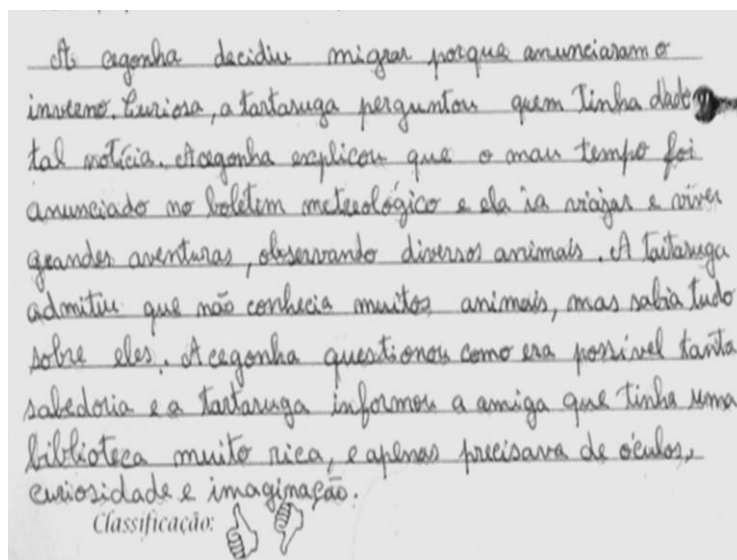 A cegonha decidiu migrar porque anunciaram o
inverno. Curiosa, a tartaruga perguntou quem tinha dado
tal notícia. A cegonha explicou que o mau tempo foi
anunciado no boletim meteeológico e ela ia viajar e viver
grandes aventuras, observando diversos animais. A tartaruga
admitiu que não conhecia muitos animais, mas sabia tudo
sobre eles. A cegonha questionou como era possível tanta
sabedoria e a tartaruga informou a amiga que tinha uma
biblioteca muito rica, e apenas precisava de óculos,
curiosidade e imaginação.
Classificação: